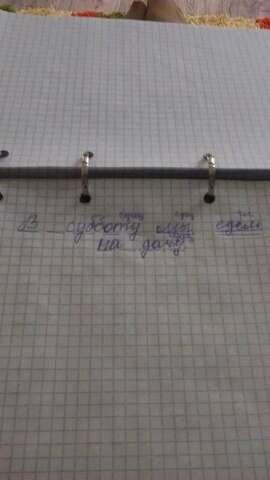 В субботу мы едем
на дачу